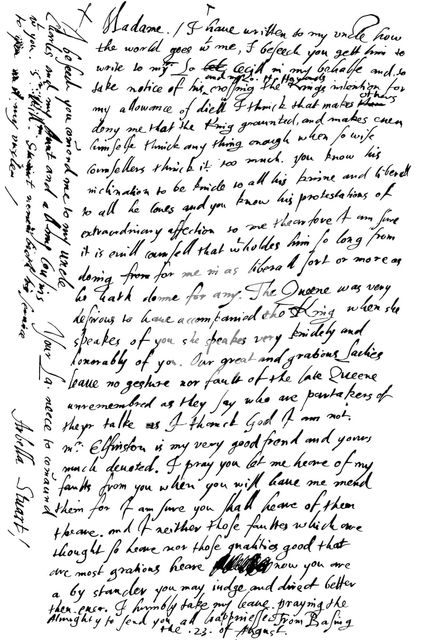 Madame / I have written to my uncle how
the world goes w me, I beseech you gett him to
write to my Lo Cecill in my behalfe and so
take notice of his crossing the Kings intention for
my allowance of diett I thinck that makes others
deny me that the King graunted, and makes even
himselfe thinck any thing enough when so wise
counsellers thinck it too much. you know his
inclination to be kinde to all his kinne and liberall
to all he loves and you know his protestations of
extraordinary affection to me therefore I am sure
it is evill counsell that wholdes him so long from
doing from for me in as liberall sort or more as
he hath donne for any. The Queene was very
desirous to have accompanied the King when she
speakes of you she speakes very kindely and
honorably of you. Our great and gratious Ladies
leave no gesture nor faulte of the late Queene
unremembred as they say who are partakers of
theyr talke as I thanck God I am not.
mr. Elfinston is my very good frend and yours
much devoted. I pray you let me heare of my
faults from you when you will have me mend
them for I am sure you shall heare of them
theare. and I neither those faultes which are
thought so heare nor those qualities good that
are most gratious heare now you are
a by stander you may iudge and direct better
then ever. I humbly take my leave praying the
Almighty to send you all happinesse From Basing
the .23. of August
I beseech you comend me to my uncle
Charles and my Aunt and
Your La: neece to comaund
Arbella Stuart /